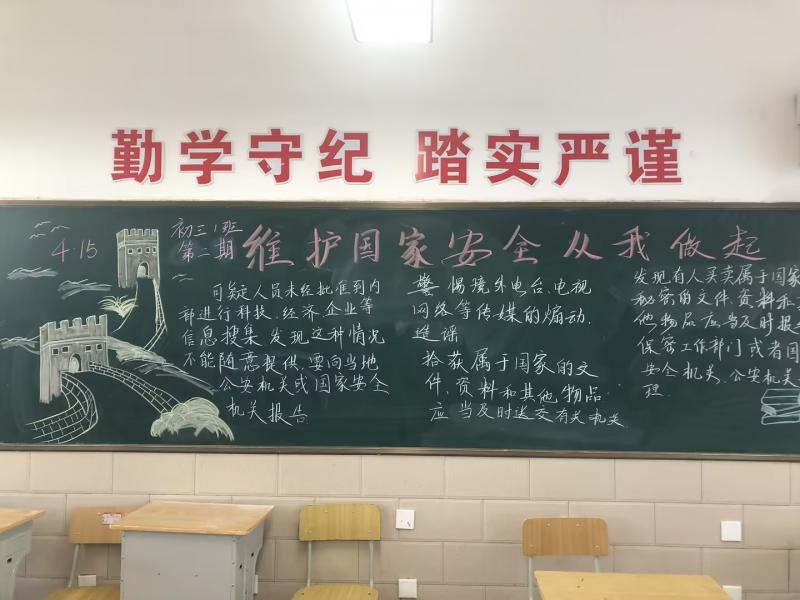 勤学守纪 踏实严谨
4.15
初三1班
第二期
维护国家安全从我做起
可疑人员未经批准到内
部进行科技、经济企业等
信息搜集 发现这种情况
不能随意提供,要向当地
公安机关或国家安全
机关报告
警惕境外电台、电视
网络等传媒的煽动、
造谣
拾获属于国家的文
件、资料和其他物品
应当及时送交有关机关
发现有人买卖属于国家
秘密的文件、资料
他物品应当及时报
保密工作部门或者国
安全机关、公安机关
理.